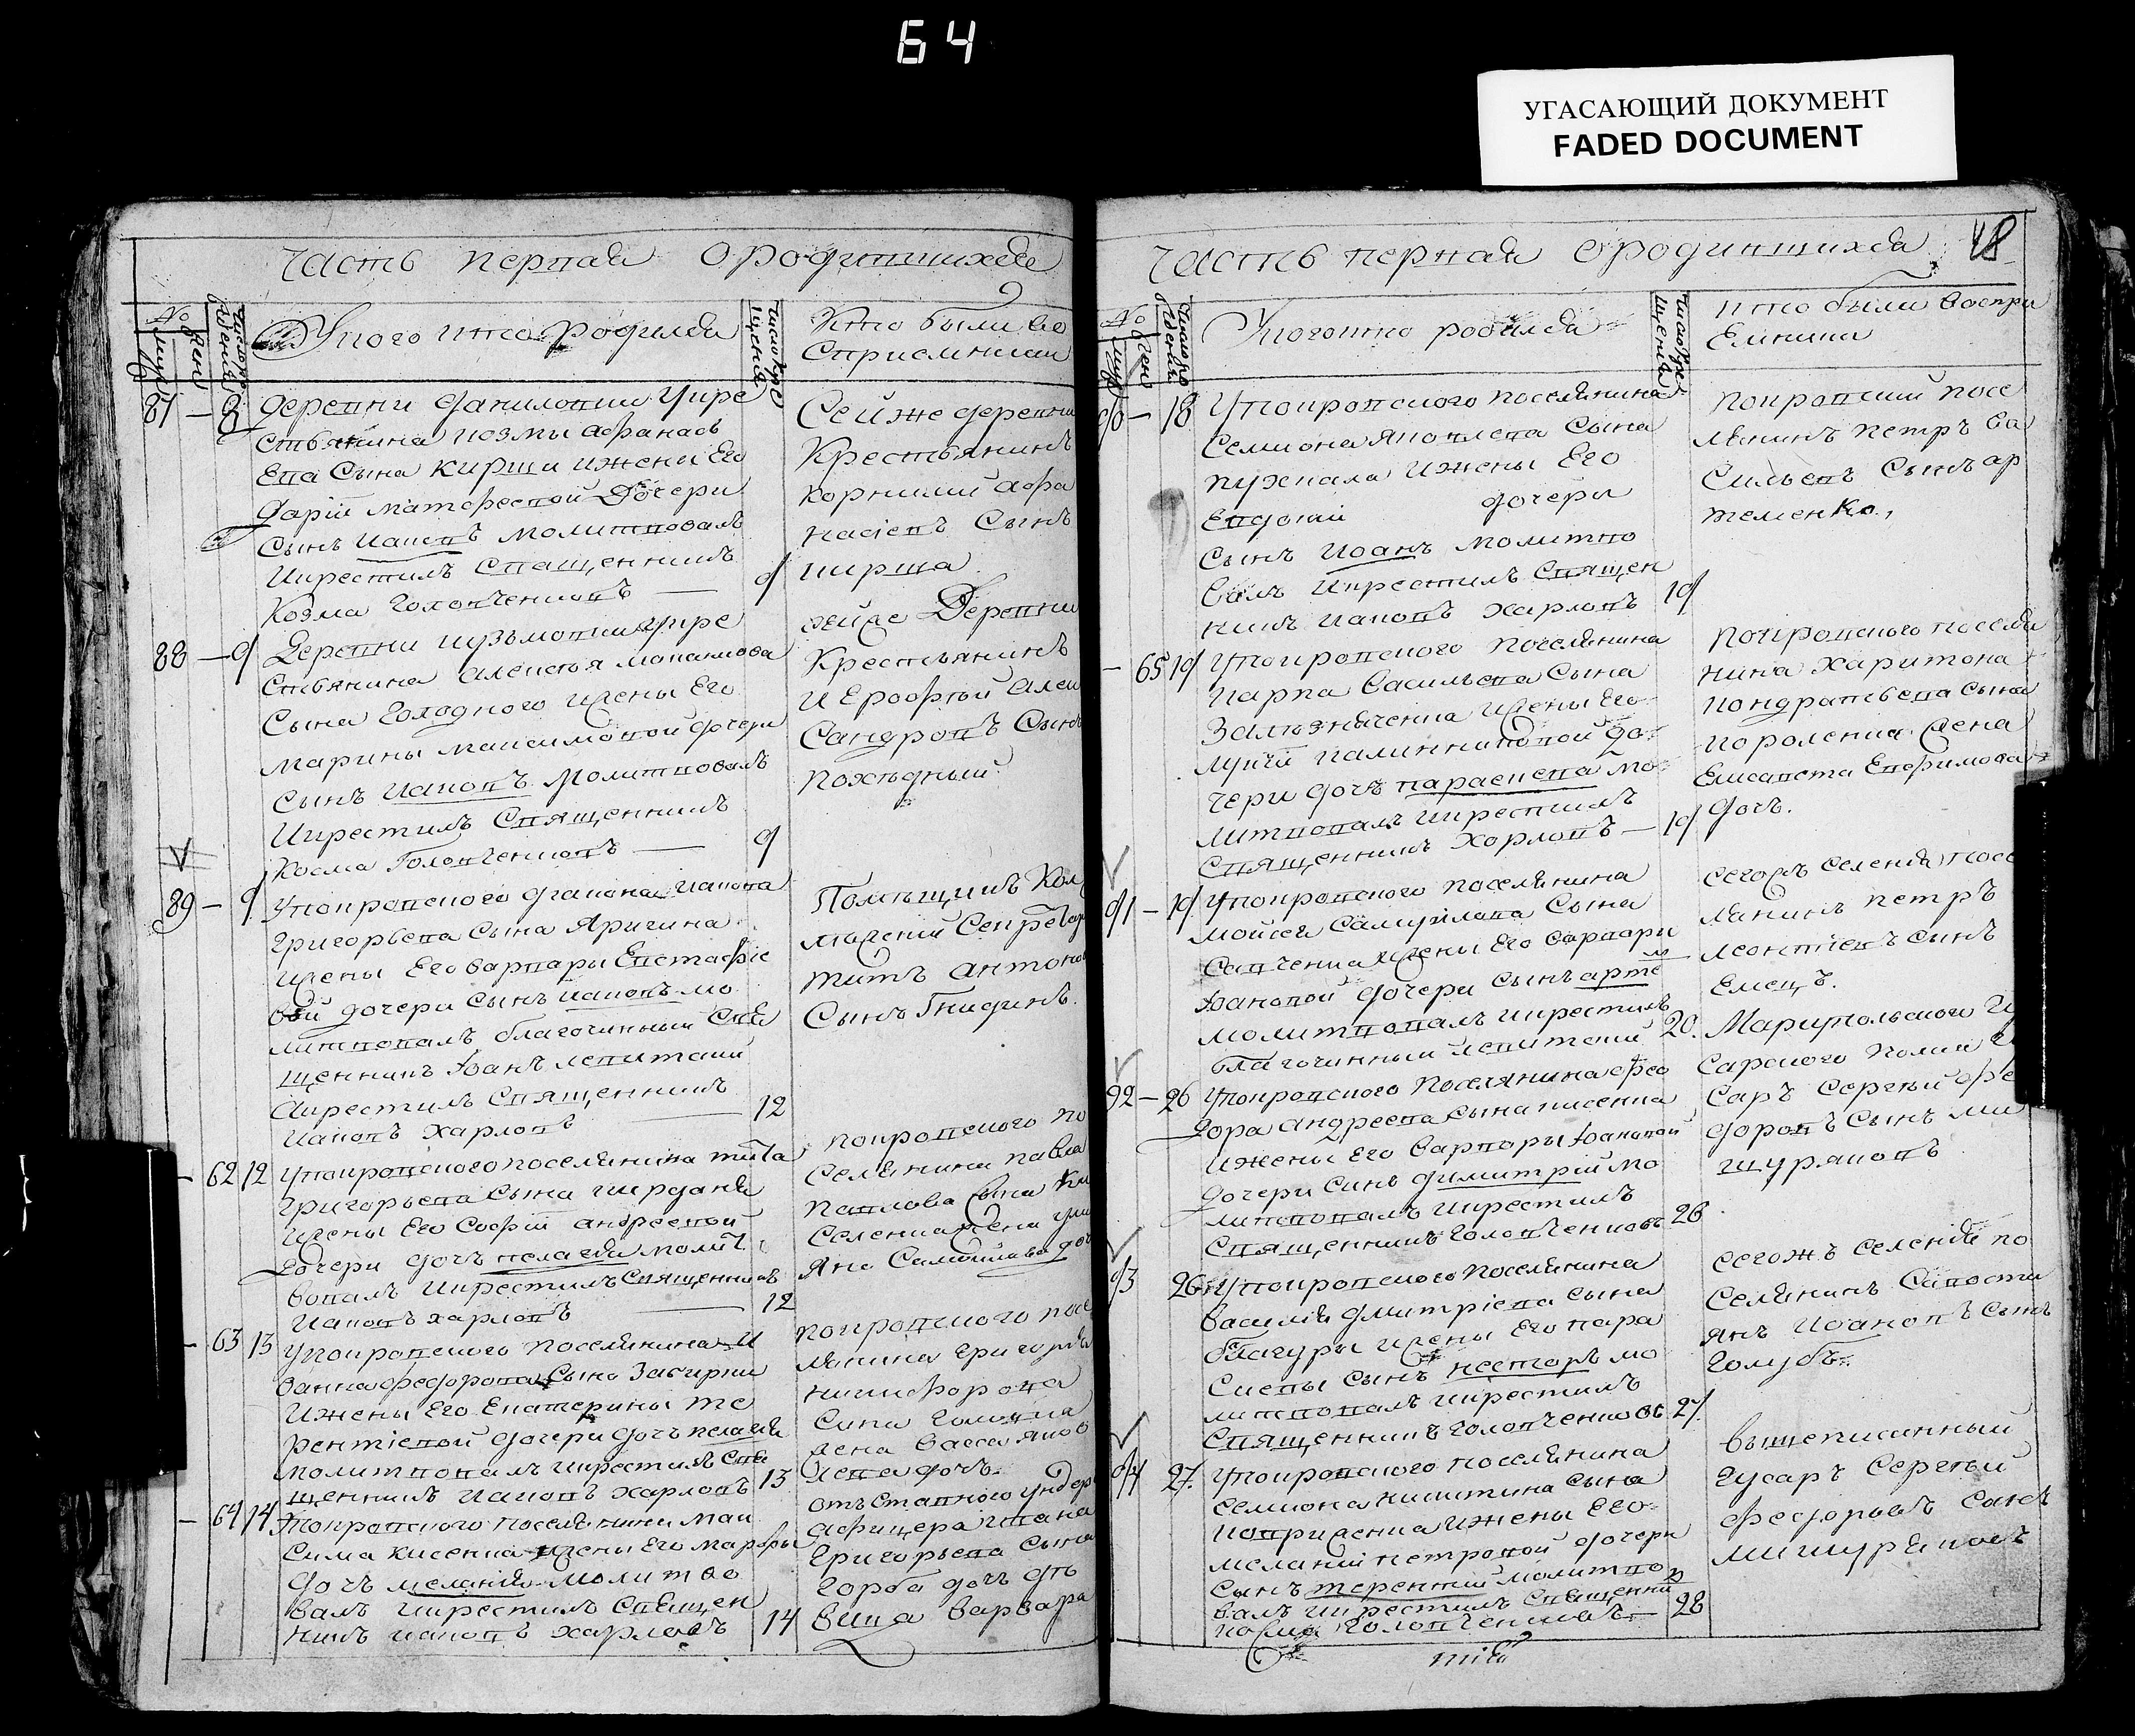 64
УГАСАЮЩИЙ ДОКУМЕНТ
FADED DOCUMENT
Часть первая о родившихся
№
муж
жен
Число рождения
У кого кто родился
Число крещения
Кто были восприемники
87 — 8
деревни Даниловки у кре
стьянина Козмы Афанась
ева сына Кирши и жены его
Дарїи Матфеевой дочери
сынъ Иаковъ молитвовалъ
и крестилъ священникъ
Козма Головченковъ — 9
Сей же деревни
крестьянинъ
Корнилий Афа
насїевъ сынъ
Кирша
88 — 9
Деревни Кузьмовки у кре
стьянина Алексѣя Максимова
сына Голодного и жены его
Марины Максимовой дочери
сынъ Иаковъ молитвовалъ
и крестилъ священникъ
Косма Головченковъ — 9
Деревни
крестьянинъ
Иерофтѣй Алек
сандровъ сынъ
89 — 9
У покровского дракона Иакова
Григорьева сына Яригина
и жены его Варвары Евстафїе
вой дочери сынъ Иаковъ мо
литвовалъ благочинный свя
щенникъ Іоанъ Левитский
а крестилъ священникъ
Иаковъ Харловъ — 12
Помѣщикъ Кол
лежский Секретарь
Титъ Антонов
сынъ Гнидинъ.
— 62 12
У покровского поселянина Тита
Григорьева сына
и жены его Софїи Андреевой
дочери дочь Пелагея молит
вовалъ и крестилъ священникъ
Иаковъ Харловъ — 12
покровского по
селянина Павла
Павлова сына
жена Ули
яна Самойлова доч
— 63 13
У покровского поселянина И
ванна Федорова сына Завирки
и жены его Екатерины Те
рентїевой дочери дочь Пелагея
молитвовалъ и крестилъ свя
щенникъ Иаковъ Харловъ 13
покровского посе
лянина Григорїя
Никифорова
сына
жена Васса Яков
лева дочь.
— 64 14
У покровского поселянина Мак
сима Кисенка и жены его Марфы
дочь Меланїя молитво
валъ и крестилъ священ
никъ Иаковъ Харловъ 14
отъставного ундер
афицера
Григорьева сына
Горба дочь дѣ
вица Варвара
Часть первая о родившихся 48
№
муж
жен
Число рождения
У кого кто родился
Число крещения
Кто были воспри
емники
90 — 18
У покровского поселянина
Семиона Яковлева сына
и жены его
Евдокїи дочери
сынъ Иоанъ молитво
валъ и крестилъ священ
никъ Иаковъ Харловъ 19
покровский посе
лянинъ Петръ Ва
сильевъ сынъ Ар
теменко,
— 65 19
У покровского поселянина
Карпа Васильева сына
Зализняченка и жены его
Лукїи Калинниковой до
чери дочь Параскева мо
литвовалъ и крестилъ
священникъ Харловъ — 19
покровского поселя
нина Харитона
Кондратьева сына
Короленка жена
Елисавета Евфимова
дочь.
91 — 19
У покровского поселянина
Мойсея Самуилова сына
Савченка и жены его Варвары
Іоановой дочери сынъ Артемъ
молитвовалъ и крестилъ
благочинный Левитский 20.
сегожъ селенїя посе
лянинъ Петръ
Леонтїевъ сынъ
Емецъ.
92 — 26
У покровского поселянина Фео
дора Андреева сына Кисенка
и жены его Варвары Іоановой
дочери синъ Димитрїй мо
литвовалъ и крестилъ
священникъ Головченковъ 26
Мариупольского Гу
сарского полка Гу
саръ Сергѣй Фе
доровъ сынъ Ми
щуряковъ
93 26
У покровского поселянина
Василїя Дмитрїева сына
и жены его Пара
скевы сынъ Несторъ мо
литвовалъ и крестилъ
священникъ Головченковъ 27.
сегожъ селенїя по
селянинъ Савости
янъ Иоановъ сынъ
Голубъ.
94 27.
У покровского поселянина
Семиона Никитина сына
и жены его
Меланїи Петровой дочери
сынъ Терентїй молитво
валъ и крестилъ священник
Косма Головченковъ — 28
вышеписанный
гусаръ Сергѣй
Федоровъ сынъ
Мишуряковъ